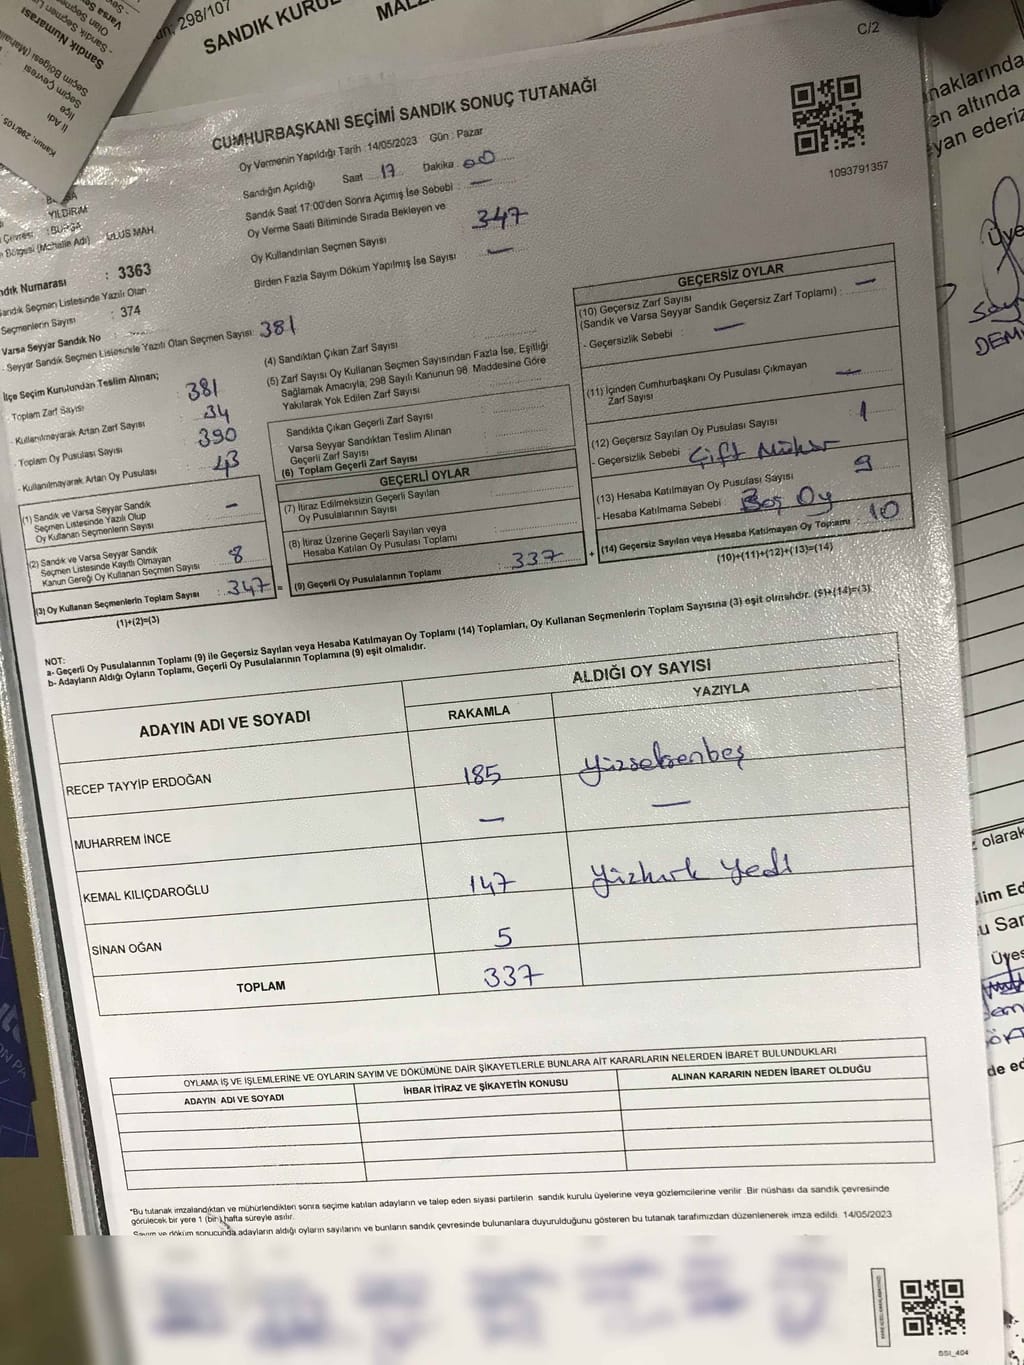 Kanun: 298/105
İl Adı
İlçe
Seçim Çevresi
Seçim Bölgesi (Mahalle
Sandık Numarası
- Sandık Seçmen
Olan Seçmen
Varsa Sey
298/107
SANDIK KURU
C/2
CUMHURBAŞKANI SEÇİMİ SANDIK SONUÇ TUTANAĞI
Oy Vermenin Yapıldığı Tarih : 14/05/2023 Gün : Pazar
Sandığın Açıldığı Saat 17 Dakika : 00
Sandık Saat 17:00'den Sonra Açımış İse Sebebi : —
Oy Verme Saati Bitiminde Sırada Bekleyen ve
Oy Kullandırılan Seçmen Sayısı 347
Birden Fazla Sayım Döküm Yapılmış İse Sayısı : —
1093791357
YILDIRIM
Çevresi : BURSA
Bölgesi (Mahalle Adı) : ULUS MAH.
ndık Numarası : 3363
Sandık Seçmen Listesinde Yazılı Olan
Seçmenlerin Sayısı : 374
Varsa Seyyar Sandık No :
- Seyyar Sandık Seçmen Listesinde Yazılı Olan Seçmen Sayısı : 381
İlçe Seçim Kurulundan Teslim Alınan;
- Toplam Zarf Sayısı : 381
- Kullanılmayarak Artan Zarf Sayısı : 34
- Toplam Oy Pusulası Sayısı : 390
- Kullanılmayarak Artan Oy Pusulası : 43
(1) Sandık ve Varsa Seyyar Sandık
Seçmen Listesinde Yazılı Olup
Oy Kullanan Seçmenlerin Sayısı : —
(2) Sandık ve Varsa Seyyar Sandık
Seçmen Listesinde Kayıtlı Olmayan
Kanun Gereği Oy Kullanan Seçmen Sayısı : 8
(3) Oy Kullanan Seçmenlerin Toplam Sayısı : 347 =
(1)+(2)=(3)
(4) Sandıktan Çıkan Zarf Sayısı :
(5) Zarf Sayısı Oy Kullanan Seçmen Sayısından Fazla İse, Eşitliği
Sağlamak Amacıyla, 298 Sayılı Kanunun 98. Maddesine Göre
Yakılarak Yok Edilen Zarf Sayısı :
Sandıkta Çıkan Geçerli Zarf Sayısı :
Varsa Seyyar Sandıktan Teslim Alınan
Geçerli Zarf Sayısı :
(6) Toplam Geçerli Zarf Sayısı :
GEÇERLİ OYLAR
(7) İtiraz Edilmeksizin Geçerli Sayılan
Oy Pusulalarının Sayısı :
(8) İtiraz Üzerine Geçerli Sayılan veya
Hesaba Katılan Oy Pusulası Toplamı :
(9) Geçerli Oy Pusulalarının Toplamı : 337 +
GEÇERSİZ OYLAR
(10) Geçersiz Zarf Sayısı
(Sandık ve Varsa Seyyar Sandık Geçersiz Zarf Toplamı) : —
- Geçersizlik Sebebi : —
(11) İçinden Cumhurbaşkanı Oy Pusulası Çıkmayan
Zarf Sayısı : —
(12) Geçersiz Sayılan Oy Pusulası Sayısı : 1
- Geçersizlik Sebebi : Çift Mühür
(13) Hesaba Katılmayan Oy Pusulası Sayısı : 9
- Hesaba Katılmama Sebebi : Boş Oy
(14) Geçersiz Sayılan veya Hesaba Katılmayan Oy Toplamı : 10
(10)+(11)+(12)+(13)=(14)
NOT:
a- Geçerli Oy Pusulalarının Toplamı (9) ile Geçersiz Sayılan veya Hesaba Katılmayan Oy Toplamı (14) Toplamları, Oy Kullanan Seçmenlerin Toplam Sayısına (3) eşit olmalıdır. (9)+(14)=(3)
b- Adayların Aldığı Oyların Toplamı, Geçerli Oy Pusulalarının Toplamına (9) eşit olmalıdır.
ADAYIN ADI VE SOYADI
ALDIĞI OY SAYISI
RAKAMLA YAZIYLA
RECEP TAYYİP ERDOĞAN 185 Yüzseksenbeş
MUHARREM İNCE — —
KEMAL KILIÇDAROĞLU 147 Yüzkırk Yedi
SİNAN OĞAN 5
TOPLAM 337
OYLAMA İŞ VE İŞLEMLERİNE VE OYLARIN SAYIM VE DÖKÜMÜNE DAİR ŞİKAYETLERLE BUNLARA AİT KARARLARIN NELERDEN İBARET BULUNDUKLARI
ADAYIN ADI VE SOYADI İHBAR İTİRAZ VE ŞİKAYETİN KONUSU ALINAN KARARIN NEDEN İBARET OLDUĞU
*Bu tutanak imzalandıktan ve mühürlendikten sonra seçime katılan adayların ve talep eden siyasi partilerin sandık kurulu üyelerine veya gözlemcilerine verilir. Bir nüshası da sandık çevresinde
görülecek bir yere 1 (bir) hafta süreyle asılır.
Sayım ve döküm sonucunda adayların aldığı oyların sayılarını ve bunların sandık çevresinde bulunanlara duyurulduğunu gösteren bu tutanak tarafımızdan düzenlenerek imza edildi. 14/05/2023
SSI_404
naklarında
en altında
yan ederiz
Üye
DEM
olarak
lim Ed
u San
Üyes
de ed